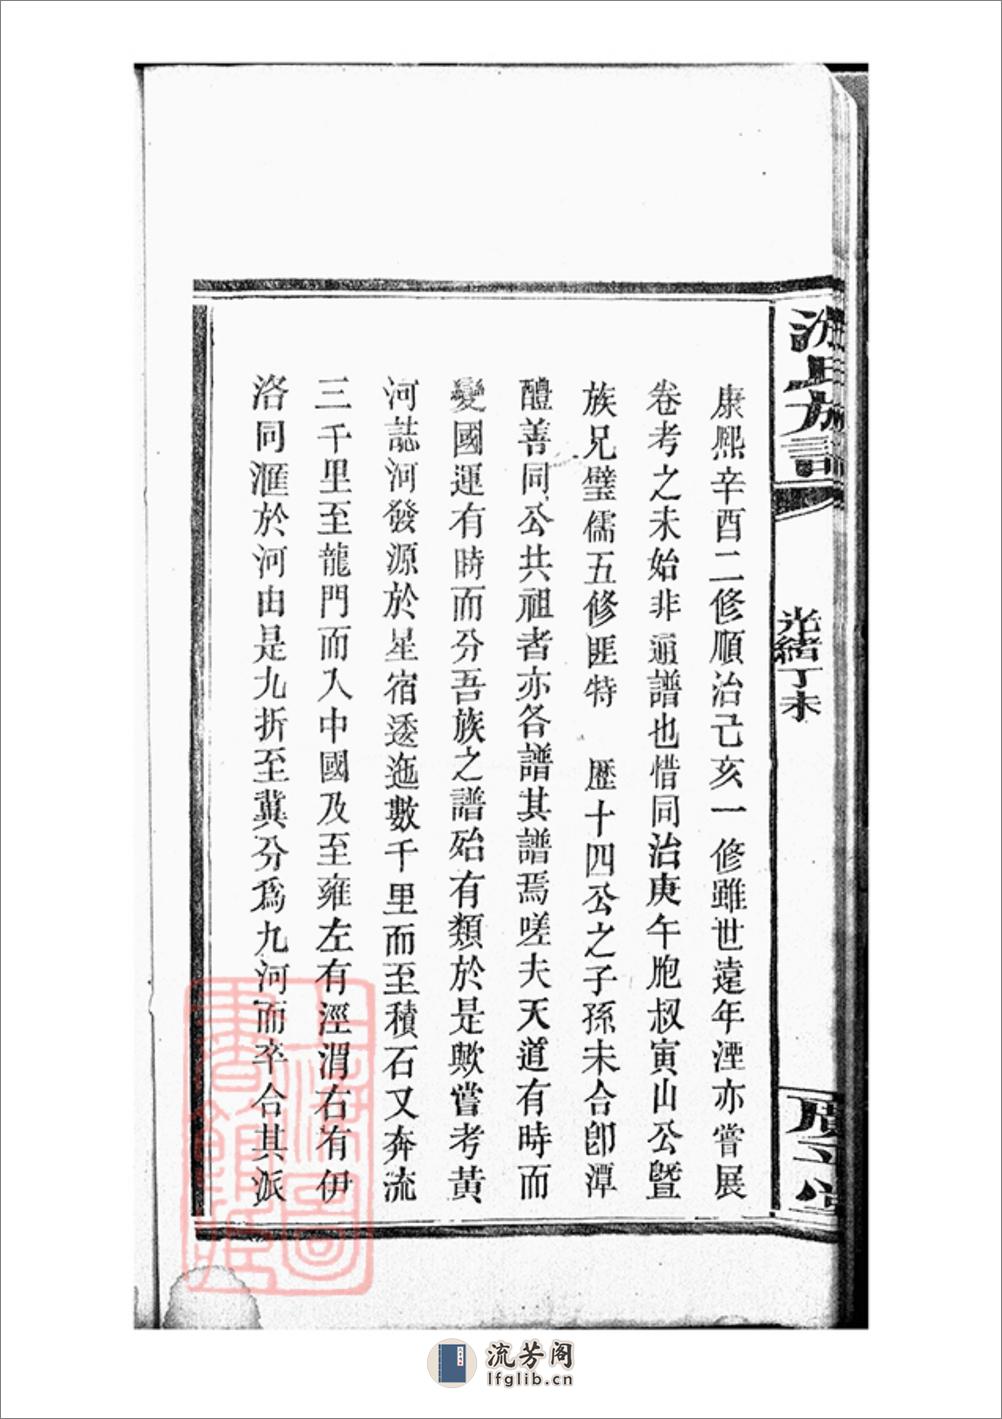 康熙辛酉二修順治己亥一修雖世遠年湮亦嘗展
卷考之未始非通譜也惜同治庚午胞叔寅山公曁
族兄璧儒五修匪特　歷十四公之子孫未合卽潭
醴善同公共祖者亦各譜其譜焉嗟夫天道有時而
變國運有時而分吾族之譜殆有類於是歟嘗考黃
河誌河發源於星宿逶迤數千里而至積石又奔流
三千里至龍門而入中國及至雍左有涇渭右有伊
洛同滙於河由是九折至冀分爲九河而卒合其派
族譜
光緒丁未
堂
上海圖書館藏
流芳阁
lfglib.cn